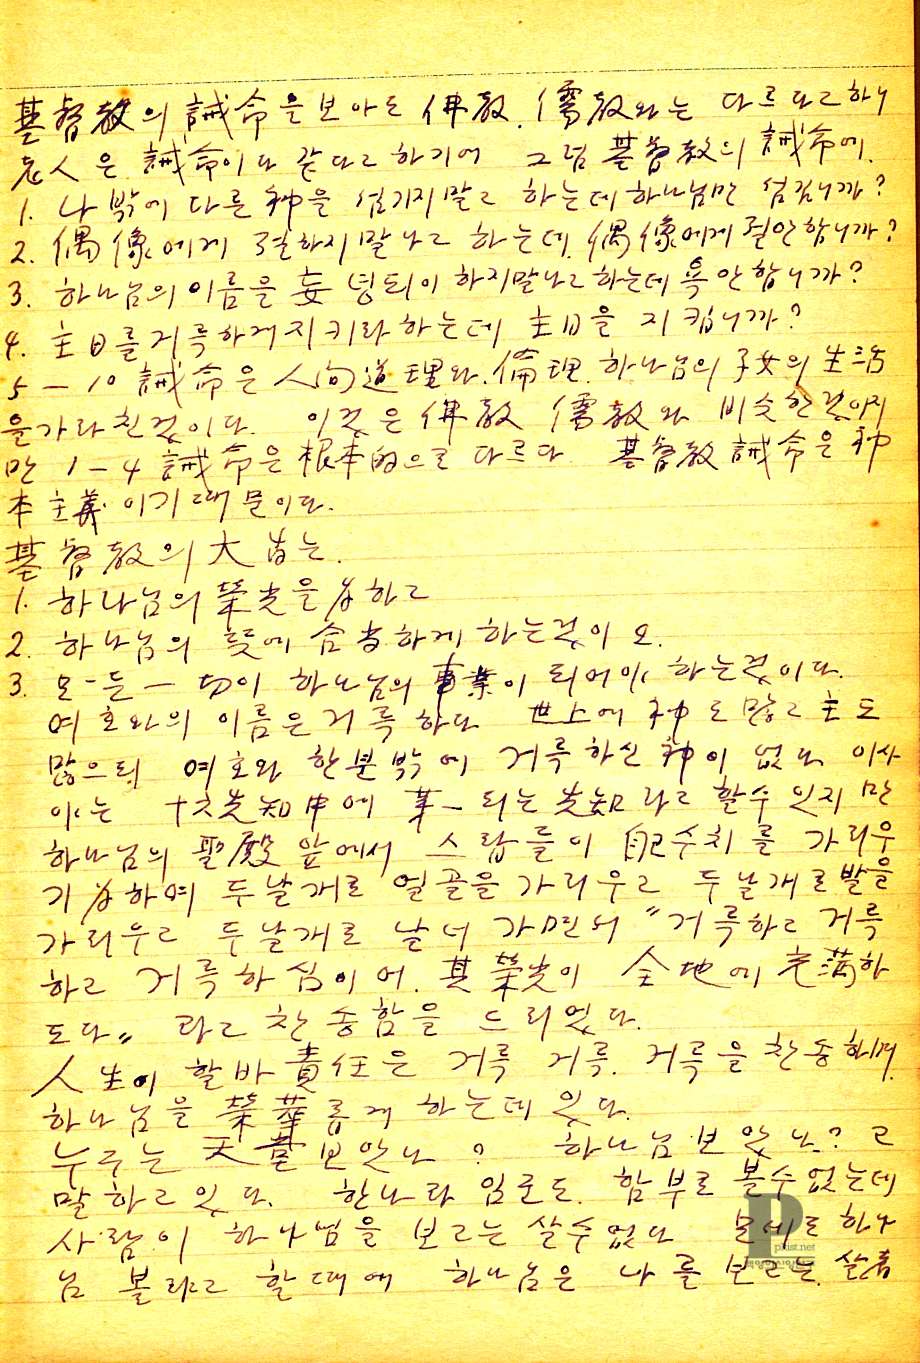 基督敎의 誡命을 보아도 佛敎. 儒敎와는 다르다고 하니
老人은 誡命이나 같다고 하기에 그럼 基督敎의 誡命에.
1. 나 밖에 다른 神을 섬기지말고 하는데 하나님만 섬깁니까?
2. 偶像에게 절하지말나고 하는데. 偶像에게 절안합니까?
3. 하나님의 이름을 妄녕되이 하지말나고하는데 욕안합니까?
4. 主日를 거륵하게 지키라 하는데 主日을 지킵니까?
5 — 10 誡命은 人向道理와. 倫理. 하나님의 子女의 生活
을 가라친것이다. 이것은 佛敎 儒敎와 비슷한것이지
만 1 — 4 誡命은 根本的으로 다르다. 基督敎誡命은 神
本主義이기 때문이다.
基督敎의 大旨는.
1. 하나님의 榮光을 爲하고
2. 하나님의 뜻에 合當하게 하는것이오.
3. 모-든 一切이 하나님의 事業이 되어야 하는것이다.
여호와의 이름은 거륵하다 世上에 神도 많고 主도
많으되 여호와 한분밖에 거륵하신 神이 없다 이사
야는 十六先知中에 第一되는 先知라고 할수있지만
하나님의 聖殿앞에서 스랍들이 自己수치를 가리우
기 爲하여 두날개로 얼골을 가리우고 두날개로 발을
가리우고 두날개로 날너가면서 "거륵하고 거륵
하고 거륵하심이어. 其榮光이 全地에 充滿하
도다" 라고 찬송함을 드리였다.
人生이 할바 責任은 거륵 거륵. 거륵을 찬송하며.
하나님을 榮華롭게 하는데 있다.
누구는 天堂 보았나? 하나님 보았나? 고
말하고있다. 한나라 임군도. 함부로 볼수없는데
사람이 하나님을 보고는 살수없다 모세도 하나
님 볼라고 할때에 하나님은 나를 보고는. 살者
P
pinist.net